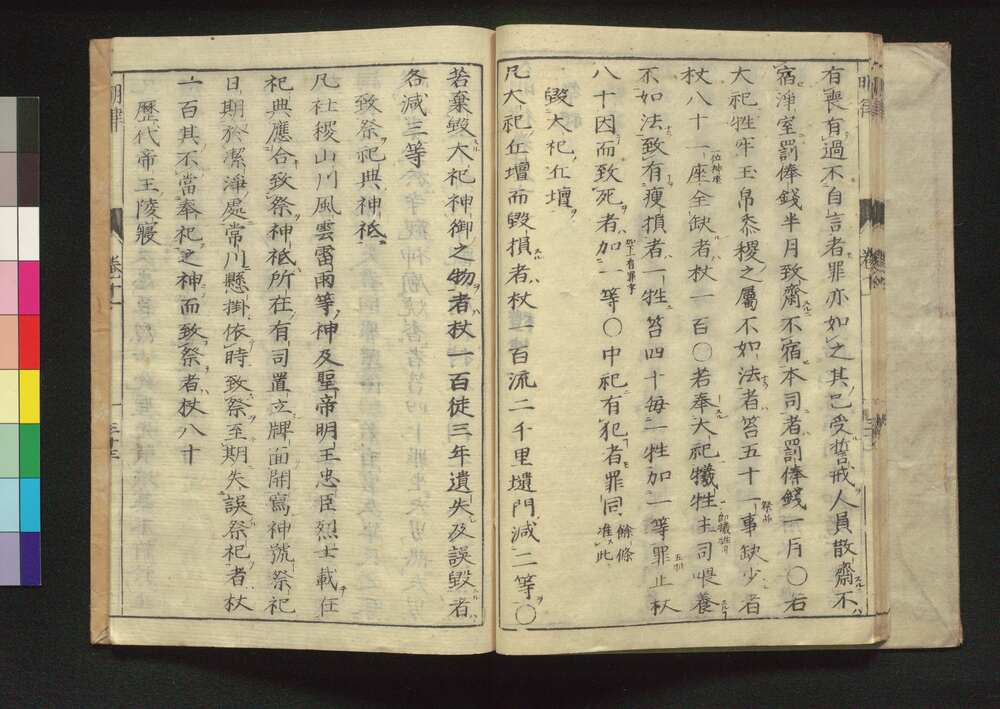 有喪有過不自言者罪亦如之其已受誓戒人員散齋不
宿淨室罰俸錢半月致齋不宿本司者罰俸錢一月〇若
大祀牲牢玉帛黍稷之屬不如法者笞五十一事缺少者
杖八十一座全缺者杖一百〇若奉大祀犧牲主司喂養
不如法致有瘦損者一牲笞四十每一牲加一等罪止杖
八十因而致死者加一等〇中祀有犯者罪同餘條准此
毀大祀丘壇
凡大祀丘壇而毀損者杖一百流二千里壝門減二等〇
若棄毀大祀神御之物者杖一百徒三年遺失及誤毀者
各減三等
致祭祀典神祇
凡社稷山川風雲雷雨等神及聖帝明王忠臣烈士載在
祀典應合致祭神祇所在有司置立牌面開寫神號祭祀
日期於潔淨處常川懸掛依時致祭至期失誤祭祀者杖
一百其不當奉祀之神而致祭者杖八十
歷代帝王陵寢
明律
卷十一
三十三